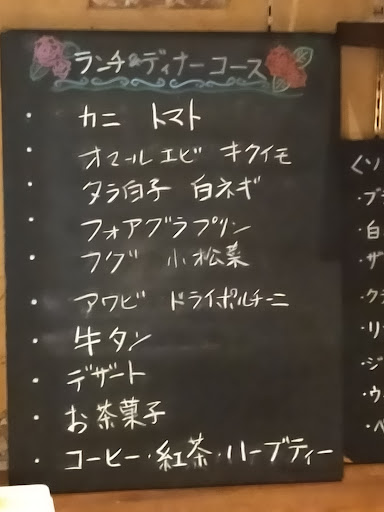 ランチ&ディナーコース
・ カニ トマト
・ オマールエビ キクイモ
・ タラ白子 白ネギ
・ フォアグラプリン
・ フグ 小松菜
・ アワビ ドライポルチーニ
・ 牛タン
・ デザート
・ お茶菓子
・ コーヒー・紅茶・ハーブティー
くソ
・ブ
・白
・ザ
・ク
・リ
・ジ
・ウ